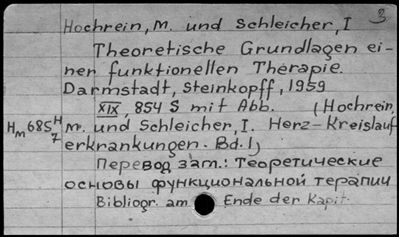 Hochrein, M. und Schleicher, I 3
Theoretische Grundlagen ei-
ner funktionellen Therapie.
Darmstadt, Steinkopff, 1959
XIX, 854 S mit Abb. (Hochrein,
Hm685H/7 M. und Schleicher, I. Herz-Kreislauf
erkrankungen. Bd. 1)
Перевод зат.: Теоретические
основы функциональной терапии
Bibliogr. am Ende der Kapit.